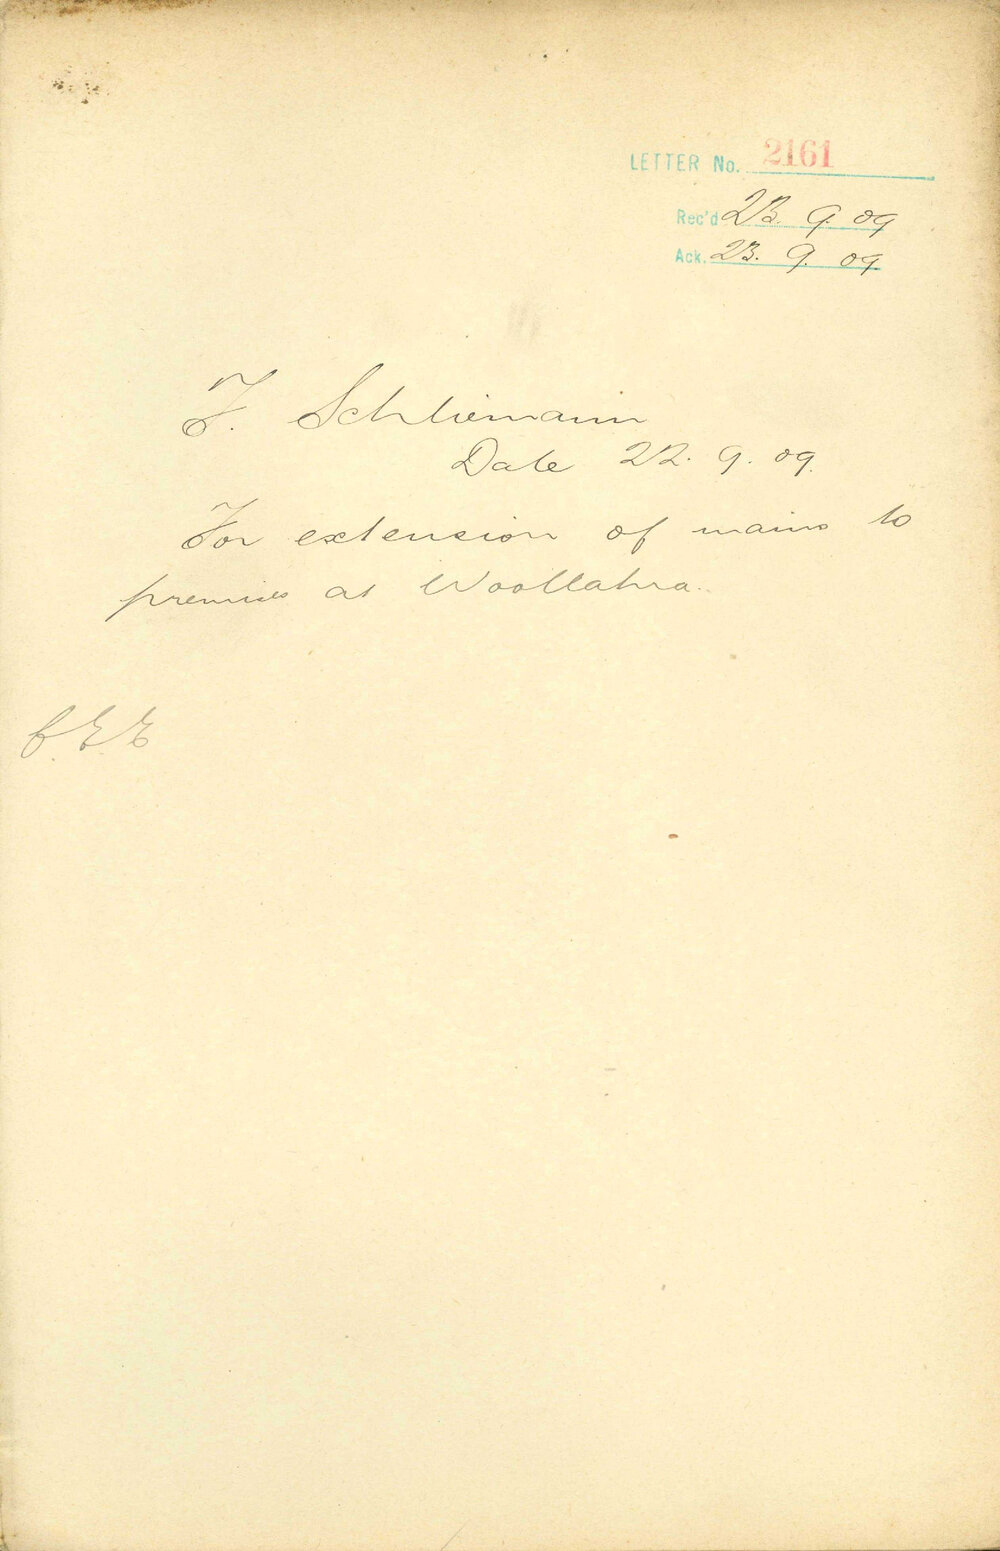 LETTER No. 2161
Rec'd 23. 9. 09
Ack. 23. 9. 09
F. Schliemann
Date 22. 9. 09.
For extension of mains to
premises at Woollahra.